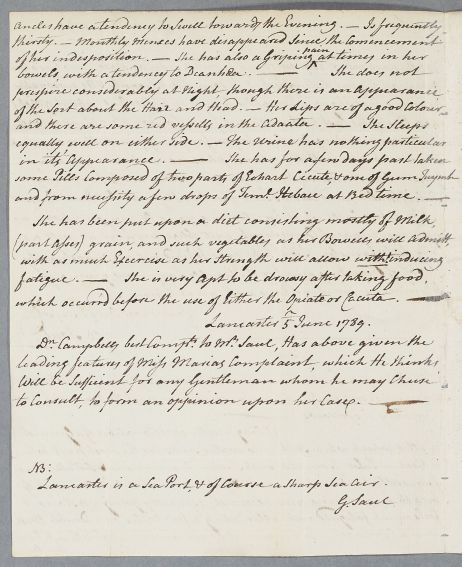 Ancles have a tendency to Swell towards the Evening. — Is frequently
thirsty. — Monthly Menses have disappeared Since the Comencement
of her indesposition. — She has also a Griping pain at times in her
bowels, with a tendency to Diarrhœa. — She does not
prespire considerably at Night, though there is an Appearance
of the Sort about the Hair and Head. — Her Lips are of a good Colour
and there are some red vessells in the Adnata. — She Sleeps
equally well on either Side. — The Urine has nothing particular
in its Appearance. — She has for a few days past taken
some Pills Composed of two parts of Extract Cicuta, & one of Gum
and from necessity a few drops of Tinct. Thebaic at Bed time. —
She has been put upon a diet consisting mostly of Milk
(part Asses) grain, and such vegetables as her Bowells will admitt,
with as much Exercise as her Strength will allow without inducing
fatigue. — She is very Apt to be drowsy after taking food,
which occurrd before the use of Either the Opiate or Cicuta. —
Lancaster 5th June 1789.
Dr. Campbells best Compts. to Mr. Saul, Has above given the
leading features of Miss Marias Complaint, which He thinks
Will be Suffient for any Gentleman whom he may Chuse
to Consult, to form an oppinion upon her Case. —
NB:
Lancaster is a Sea Port, & of Course a Sharp Sea Air.
G. Saul